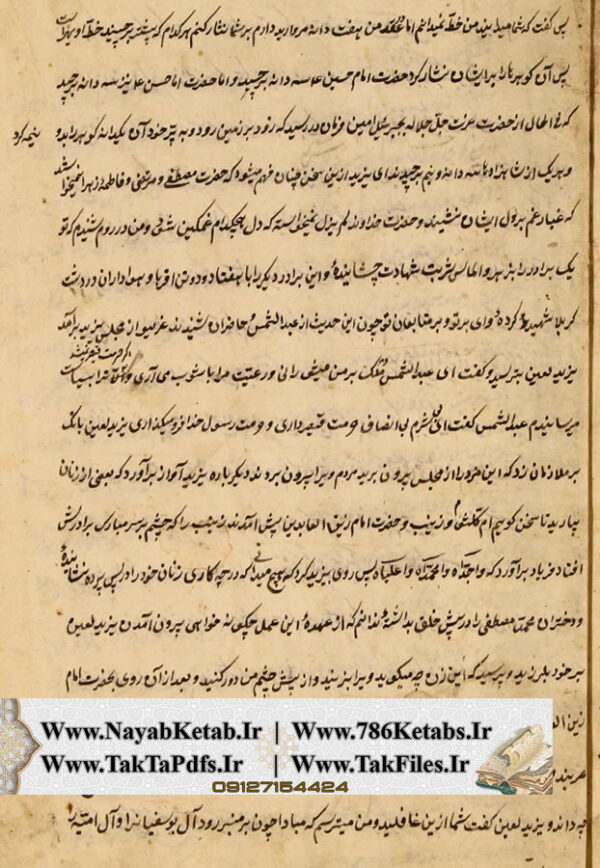 پس گفت که شما میدانید من خط نمیدانم اما عقد من هفت دانه مروارید دارم بر شما نثار کنم هر کدام که بیشتر برچیند خط او بهتر است
پس آن گوهرها را بر ایشان نثار کرد حضرت امام حسین ع سه دانه برچید و اما حضرت امام حسن ع نیز سه دانه برچید
که فی الحال از حضرت عزت جل جلاله بجبرئیل امین فرمان در رسید که زود بر زمین رود و به پر خود آن یکدانه گوهر را بدو
نیمه کرد
و هر یک از شاهزادها سه دانه و نیم برچیدند ای یزید ازین سخن چنان فهم میشود که حضرت مصطفی و مرتضی و فاطمه زهرا نمیخواستند
که غبار غم بر دل ایشان نشیند و حضرت خداوند لم یزل نمیخواسته که دل هیچکدام غمگین شود و من در روم شنیدم که تو
یک برادر را بزهر و الماس شربت شهادت چشانیده و این برادر دیگر را با هفتاد و دو تن اقربا و هواداران در دشت
کربلا شهید کرده وای بر تو و بر متابعان تو چون این حدیث از عبدالشمس حاضران شنیدند غریو از مجلس یزید برآمد
یزید لعین بترسید و گفت ای عبدالشمس ملک بر من میشورانی و رعیت مرا باشوب می آری و الا ترا بسیاست
میرسانیدم عبدالشمس گفت ای بی شرم بی انصاف حرمت قیصر داری و حرمت رسول خدا فرو میگذاری یزید لعین بانگ
بر ملازمان زد که این مرد را از مجلس بیرون برید مردم ویرا بیرون بردند دیگر باره یزید آواز برآورد که بعضی از زنان
بیارید تا سخن گوییم ام کلثوم و زینب و حضرت امام زین العابدین پیش آمدند زینب را که چشم بر سر مبارک برادرش
افتاد فریاد برآورد که واجداه وامحمداه واعلیاه پس روی بیزید کرد که هیچ میدانی که در چه کاری زنان خود را در پس پرده نشانیده
و دختران محمد مصطفی را در پیش خلق بداشته ندانم که از عهده این عمل چگونه خواهی بیرون آمدن یزید لعین
بر خود بلرزید و پرسید که این زن چه میگوید ویرا بزنید و از پیش چشم من دور کنید و بعد از آن روی بحضرت امام
زین ال
Www.NayabKetab.Ir | Www.786Ketabs.Ir
Www.TakTaPdfs.Ir | Www.TakFiles.Ir
09127154424
چه داند و یزید لعین گفت شما ازین غافلید و من میترسم که مبادا چون بر منبر رود آل بوسفیان را و آل امیه را